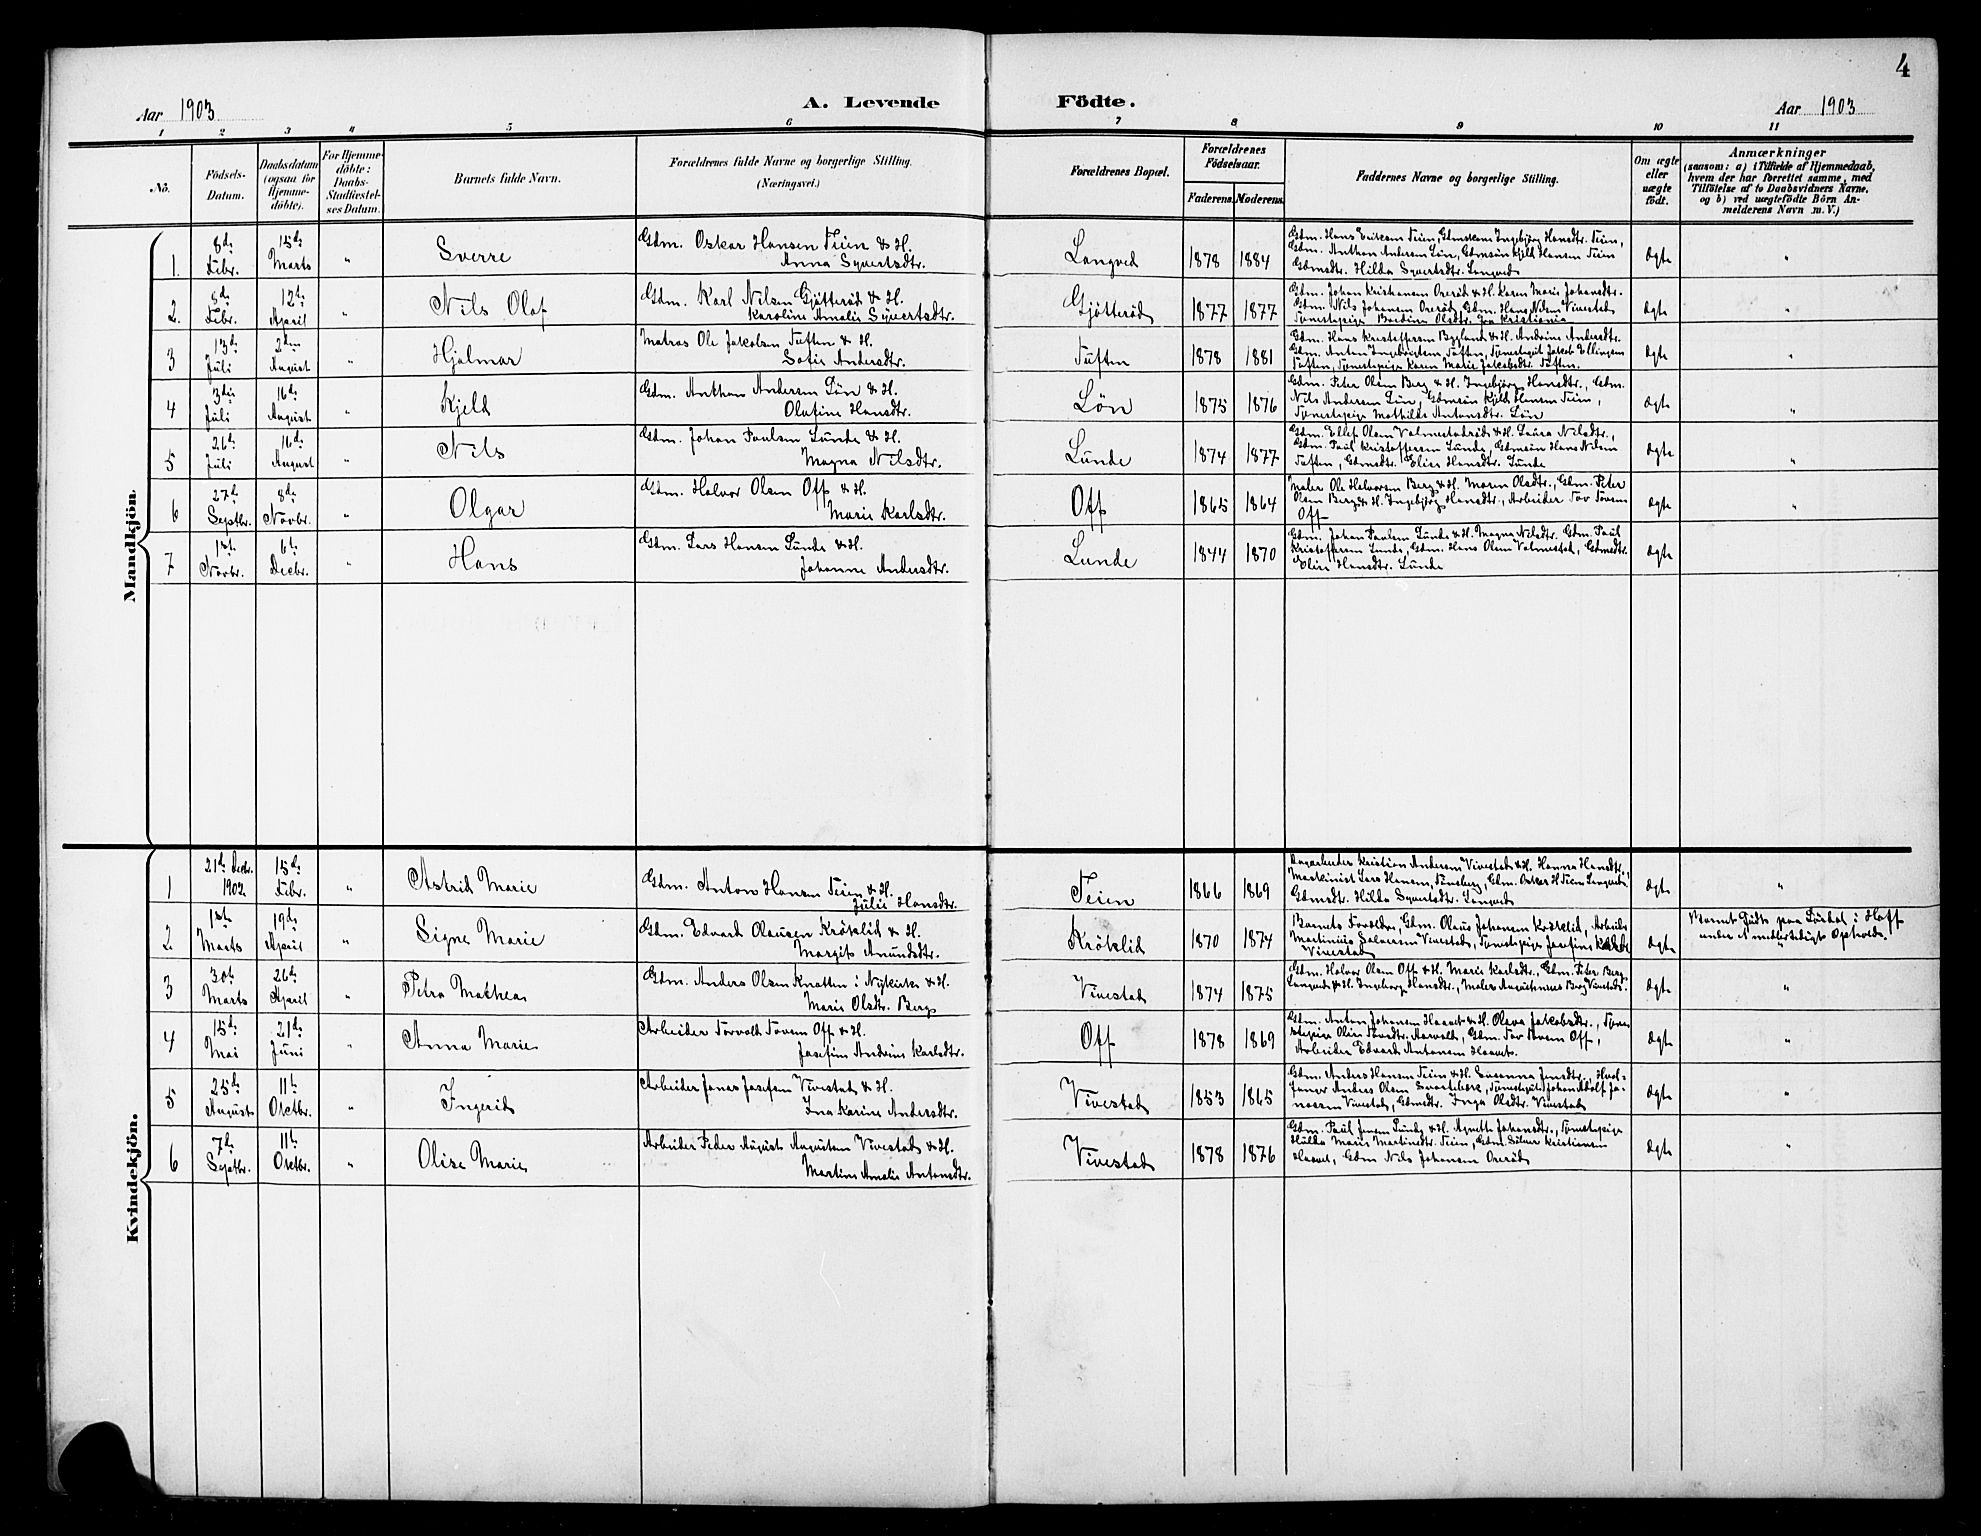 4
Aar 1903
A. Levende
Födte.
Aar 1903
1 2 3 4 5 6 7 8 9 10 11
No.
Födsels-
Datum.
Daabsdatum
(ogsaa for
Hjemme-
döbte).
For Hjemme-
döbte:
Daabs-
Stadfæstel-
ses Datum.
Barnets fulde Navn.
Forældrenes fulde Navne og borgerlige Stilling.
(Næringsvei.)
Forældrenes Bopæl.
Forældrenes
Födselsaar.
Faderens. Moderens.
Faddernes Navne og borgerlige Stilling.
Om ægte
eller
uægte
födt.
Anmærkninger
(saasom: a) i Tilfælde af Hjemmedaab,
hvem der har forrettet samme, med
Tilföielse af to Daabsvidners Navne,
og b) ved uægtefödte Börn An-
melderens Navn m. V.)
Mandkjön.
1.
8de
Febr.
15de
Marts
"
Sverre
Gdm. Oskar Hansen Teien & H.
Anna Syvertsdtr.
Langved
1878
1884
Gdm. Hans Eriksen Teien, Gdmskone Ingebjörg Hansdtr. Teien,
Gdm. Anthon Andersen Løn, Gdmsön Kjeld Hansen Teien
Gdmsdtr. Hilda Syvertsdtr. Langved
Ægte
"
2.
8de
Febr.
12te
April
"
Nils Olaf
Gdm. Karl Nilsen Gjötteröd & H.
Karoline Amalie Syvertsdtr.
Gjötteröd
1877
1877
Gdm. Johan Kristiansen Oreröd & H. Karen Marie Johansdtr.
Gdm. Nils Johansen Oreröd, Gdm. Hans Nilsen Vivestad
Tjenestepige Bordine Olsdtr. fra Kristiania
Ægte
"
3
13de
Juli
2den
August
"
Hjalmar
Matros Ole Jakobsen Tuften & H.
Sofie Andersdtr.
Tuften
1878
1881
Gdm. Hans Kristoffersen Bygland & H. Andrine Andersdtr.
Gdm. Anton Ingebrigtsen Tuften, Tjenestegut Jakob Ellingsen
Tuften, Tjenestepige Karen Marie Jakobsdtr. Tuften.
Ægte
"
4
3die
Juli
16de
August
"
Kjeld
Gdm. Anthon Andersen Løn & H.
Olafine Hansdtr.
Løn
1875
1876
Gdm. Peter Olsen Berg & H. Ingebjörg Hansdtr., Gdm.
Nils Andersen Løn, Gdmsön Kjeld Hansen Teien,
Tjenestepige Mathilde Antonsdtr. Løn
Ægte
"
5
26de
Juli
16de
August
"
Nils
Gdm. Johan Paulsen Lunde & H.
Magna Nilsdtr.
Lunde
1874
1877
Gdm. Ellef Olsen Valmestadröd & H. Laura Nilsdtr.,
Gdm. Paul Kristoffersen Lunde, Gdmsön Hans Nilsen
Tuften, Gdmsdtr. Elise Hansdtr. Lunde
Ægte
"
6
27de
Septbr.
8de
Novbr.
"
Olgar
Gdm. Halvor Olsen Off & H.
Marie Karlsdtr.
Off
1865
1864
Maler Ole Halvorsen Berg & H. Maren Olsdtr., Gdm. Peter
Olsen Berg & H. Ingebjörg Hansdtr., Arbeider Tov Tovsen
Off
Ægte
"
7
1ste
Novbr.
6te
Decbr.
"
Hans
Gdm. Lars Hansen Lunde & H.
Johanne Andersdtr.
Lunde
1844
1870
Gdm. Johan Paulsen Lunde & H. Magna Nilsdtr. Gdm. Paul
Kristoffersen Lunde, Gdm. Hans Olsen Valmestad, Gdmsdtr.
Elise Hansdtr. Lunde
Ægte
Kvindekjön.
1
21de Decbr.
1902
15de
Febr.
"
Astrid Marie
Gdm. Anton Hansen Teien & H.
Julie Hansdtr.
Teien
1866
1869
Dagarbeider Kristian Andersen Vivestad & H. Hanna Hansdtr.,
Maskinist Lars Hansen, Tønsberg, Gdm. Oskar H. Teien Langved
Gdmsdtr. Hilda Syvertsdtr. Langved
Ægte
"
2
1ste
Marts
19de
April
"
Signe Marie
Gdm. Edvard Olausen Kröklid & H.
Margit Amundsdtr.
Kröklid
1870
1874
Barnets Forældre, Gdm. Olaus Johansen Kröklid, Arbeider
Vivestad, Tjenestepige Josefine
Vivestad
Ægte
Barnet Födt paa i Hoff
under et midlertidigt Ophold.
3
30te
Marts
26de
April
"
Petra Mathea
Gdm. Anders Olsen Knatten i Nykirke & H.
Marie Olsdtr. Berg
Vivestad
1874
1875
Gdm. Halvor Olsen Off & H. Marie Karlsdtr., Gdm. Peter Berg
Langved & H. Ingeborg Hansdtr., Maler Augustinius Berg Vivestad.
Ægte
"
4
15de
Mai
21de
Juni
"
Anna Marie
Arbeider Torvald Tovsen Off & H.
Josefine Andrine Karlsdtr.
Off
1878
1869
Gdm. Anton Johansen Haavet & H. Olava Jakobsdtr., Tjene-
stepige Oline Tovsdtr. Aarvold, Gdm. Tov Tovsen Off,
Arbeider Edvard Antonsen Haavet.
Ægte
"
5
25de
August
11te
Octbr.
"
Ingerid
Arbeider Jonas Josefsen Vivestad & H.
Ina Karine Andersdtr.
Vivestad
1853
1865
Gdm. Anders Hansen Teien & H. Susanna Jensdtr., Hval-
fanger Anders Olsen Svartebæk, Tjenestegut Johan Adolf Jo-
nassen Vivestad, Gdmsdtr. Inga Olsdtr. Vivestad
Ægte
"
6
7de
Septbr.
11te
Octbr.
"
Olise Marie
Arbeider Peder August Augustsen Vivestad & H.
Martine Amalie Antonsdtr.
Vivestad
1878
1876
Gdm. Paul Jensen Lunde & H. Agnette Johansdtr., Tjenestepige
Hulda Marie Martinsdtr. Teien, Gdm. Kristiansen
Haavet, Gdm Nils Johansen Oreröd
Ægte
"